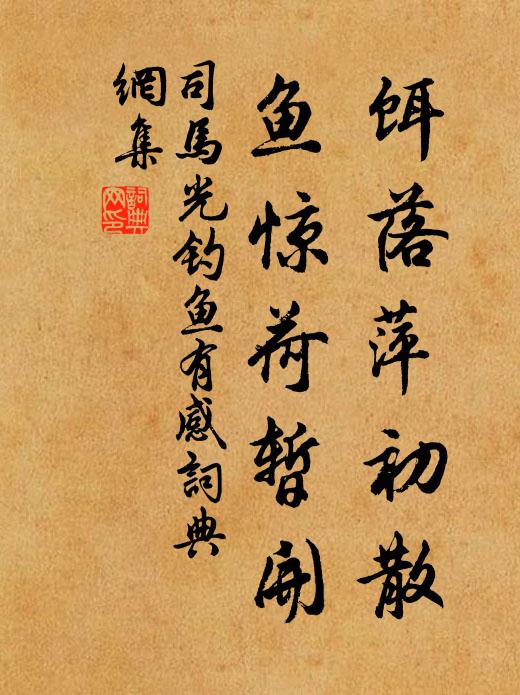 饵落萍初散
鱼惊荷暂开
司馬光钓鱼有感詞典
網集
詞典
网印